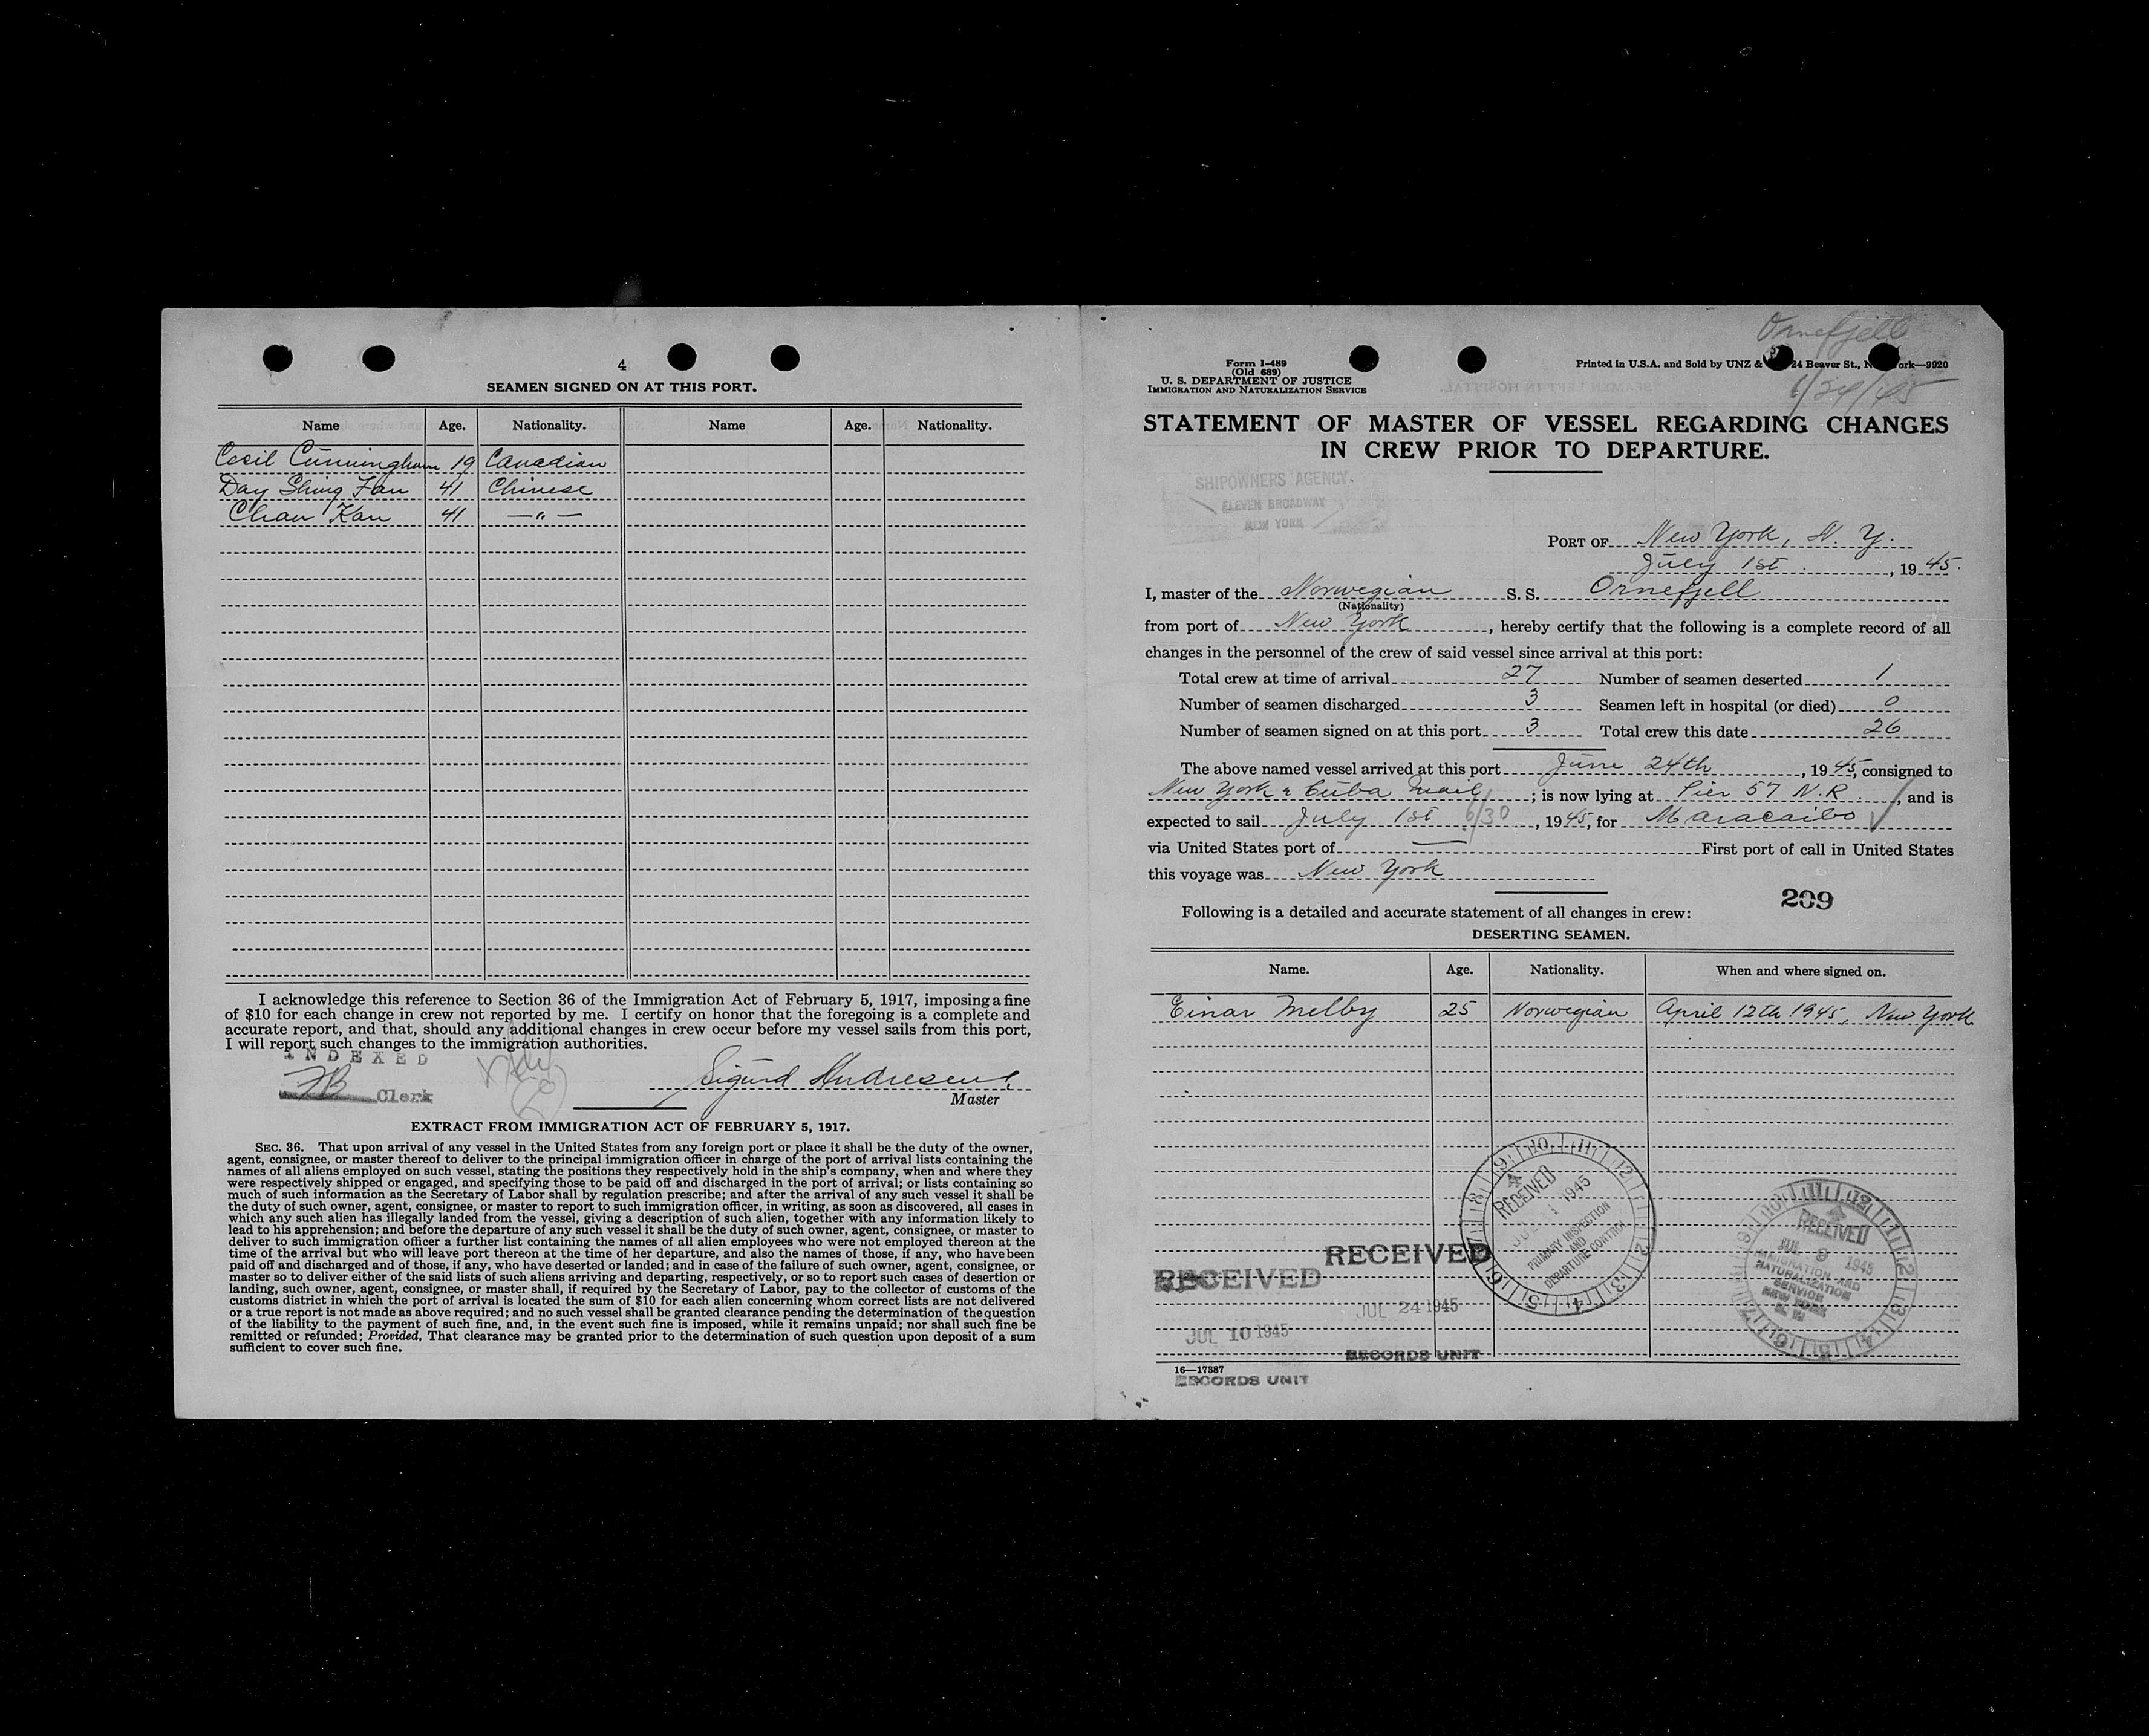 4
SEAMEN SIGNED ON AT THIS PORT.
Name Age. Nationality. Name Age. Nationality.
Cecil Cunningham 19 Canadian
Day Shing Fan 41 Chinese
Chan Kan 41 —"—
I acknowledge this reference to Section 36 of the Immigration Act of February 5, 1917, imposing a fine
of $10 for each change in crew not reported by me. I certify on honor that the foregoing is a complete and
accurate report, and that, should any additional changes in crew occur before my vessel sails from this port,
I will report such changes to the immigration authorities.
INDEXED
FB Clerk
Sigurd Andresen
Master
EXTRACT FROM IMMIGRATION ACT OF FEBRUARY 5, 1917.
SEC. 36. That upon arrival of any vessel in the United States from any foreign port or place it shall be the duty of the owner,
agent, consignee, or master thereof to deliver to the principal immigration officer in charge of the port of arrival lists containing the
names of all aliens employed on such vessel, stating the positions they respectively hold in the ship's company, when and where they
were respectively shipped or engaged, and specifying those to be paid off and discharged in the port of arrival; or lists containing so
much of such information as the Secretary of Labor shall by regulation prescribe; and after the arrival of any such vessel it shall be
the duty of such owner, agent, consignee, or master to report to such immigration officer, in writing, as soon as discovered, all cases in
which any such alien has illegally landed from the vessel, giving a description of such alien, together with any information likely to
lead to his apprehension; and before the departure of any such vessel it shall be the duty of such owner, agent, consignee, or master to
deliver to such immigration officer a further list containing the names of all alien employees who were not employed thereon at the
time of the arrival but who will leave port thereon at the time of her departure, and also the names of those, if any, who have been
paid off and discharged and of those, if any, who have deserted or landed; and in case of the failure of such owner, agent, consignee, or
master so to deliver either of the said lists of such aliens arriving and departing, respectively, or so to report such cases of desertion or
landing, such owner, agent, consignee, or master shall, if required by the Secretary of Labor, pay to the collector of customs of the
customs district in which the port of arrival is located the sum of $10 for each alien concerning whom correct lists are not delivered
or a true report is not made as above required; and no such vessel shall be granted clearance pending the determination of the question
of the liability to the payment of such fine, and, in the event such fine is imposed, while it remains unpaid; nor shall such fine be
remitted or refunded; Provided, That clearance may be granted prior to the determination of such question upon deposit of a sum
sufficient to cover such fine.
Ornefjell
6/24/45
Form I-489
(Old 689)
U. S. DEPARTMENT OF JUSTICE
IMMIGRATION AND NATURALIZATION SERVICE
Printed in U.S.A. and Sold by UNZ & 24 Beaver St., N ork—9920
STATEMENT OF MASTER OF VESSEL REGARDING CHANGES
IN CREW PRIOR TO DEPARTURE.
SHIPOWNERS AGENCY.
ELEVEN BROADWAY
NEW YORK
PORT OF New York, N. Y.
July 1st, 1945.
I, master of the Norwegian S. S. Ornefjell
(Nationality)
from port of New York, hereby certify that the following is a complete record of all
changes in the personnel of the crew of said vessel since arrival at this port:
Total crew at time of arrival 27 Number of seamen deserted 1
Number of seamen discharged 3 Seamen left in hospital (or died) 0
Number of seamen signed on at this port 3 Total crew this date 26
The above named vessel arrived at this port June 24th, 1945, consigned to
New York & Cuba Mail; is now lying at Pier 57 N.R., and is
expected to sail July 1st 6/30, 1945, for Maracaibo
via United States port of — First port of call in United States
this voyage was New York
209
Following is a detailed and accurate statement of all changes in crew:
DESERTING SEAMEN.
Name. Age. Nationality. When and where signed on.
Einar Melby 25 Norwegian April 12th 1945, New York
9 10 11 12 1 2 3 4 5 6 7 8
RECEIVED
1945
PRIMARY INSPECTION
AND
DEPARTURE CONTROL
RECEIVED
JUL 9 1945
IMMIGRATION AND
NATURALIZATION
SERVICE
NEW YORK
N. Y.
RECEIVED
JUL 24 1945
RECORDS UNIT
RECEIVED
JUL 10 1945
16—17387
RECORDS UNIT